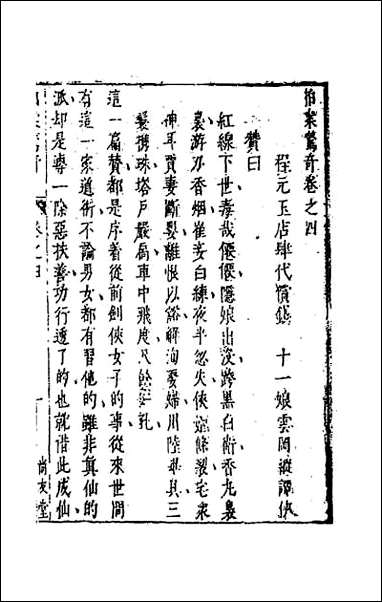 拍案驚奇卷之四
程元玉店肆代償錢　十一娘雲岡縱譚俠
贊曰
紅線下世毒哉僊僊隱娘出沒跨黑白衛香丸裊
裊游刃香烟崔妾白練夜半忽失俠嫗條裂宅衆
神耳賈妻斷嬰離恨以豁解洵娶婦川陸畢具三
鬟攜珠塔戶嚴扃車中飛度尺餘一孔
這一篇贊都是序着從前劍俠女子的事從來世間
有這一家道術不論男女都有習他的雖非真仙的
派却是專一除惡扶善功行透了的也就借此成仙
卷之四
一
尚友堂